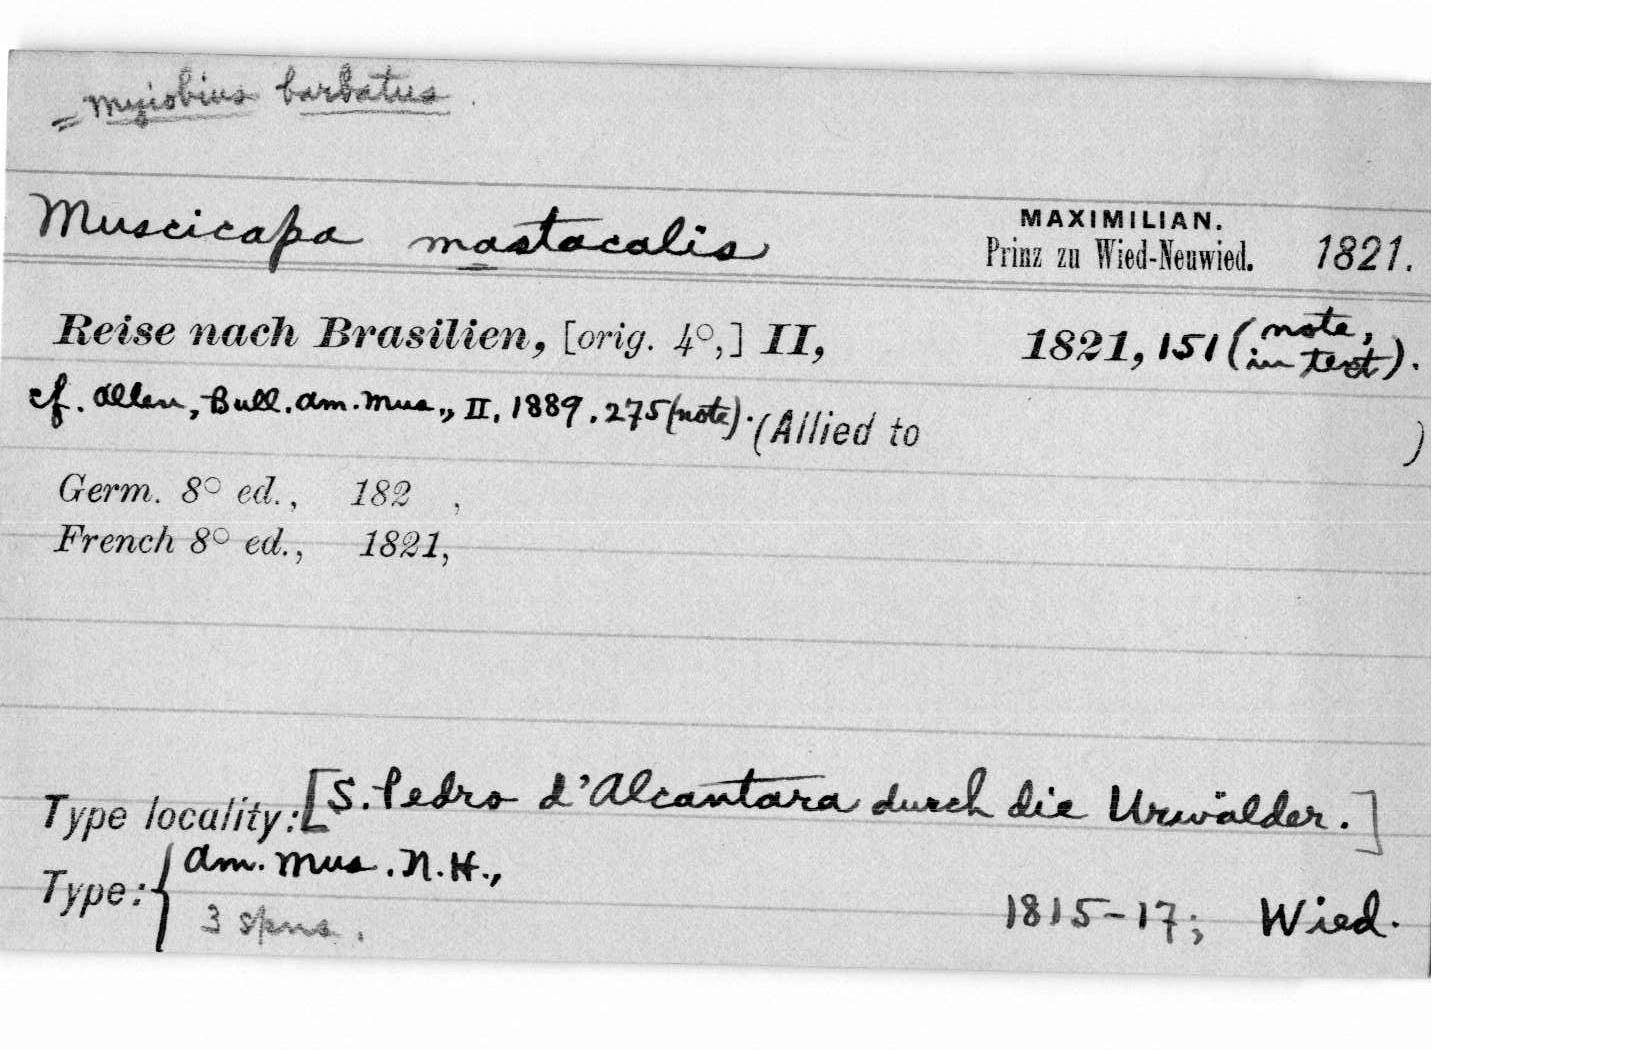 = Myiobius barbatus.
Muscicapa mastacalis MAXIMILIAN. Prinz zu Wied-Neuwied. 1821.
Reise nach Brasilien, [orig. 4º,] II, 1821, 151 (note, in text).
cf. Allen, Bull. Am. Mus., II, 1889, 275 (note). (Allied to )
Germ. 8º ed., 182 ,
French 8º ed., 1821,
Type locality: [S. Pedro d'Alcantara durch die Urwälder.]
Type: { Am. Mus. N.H.,
3 spns. 1815-17; Wied.